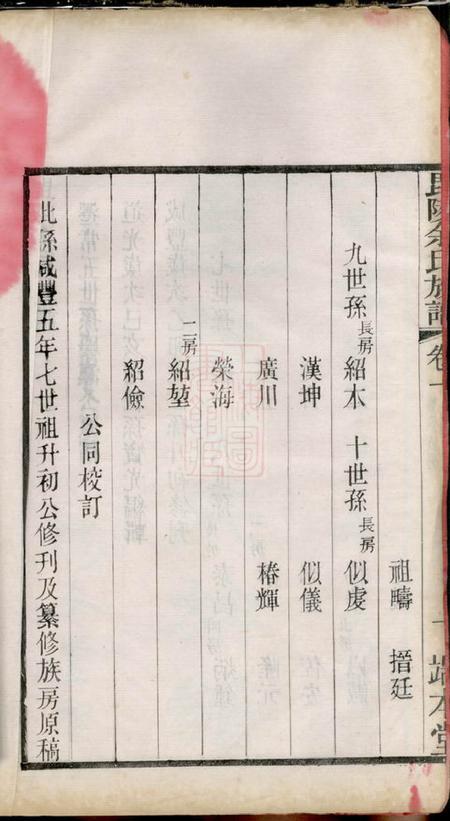 毘陵余氏族譜 卷一 一 敦本堂
祖疇 搢廷
九世孫 長房 紹木 十世孫 長房 似虔
漢坤 似儀
廣川 椿輝
榮海
二房 紹堃
紹儉
公同校訂
此係咸豐五年七世祖升初公修刊及纂修族房原稿